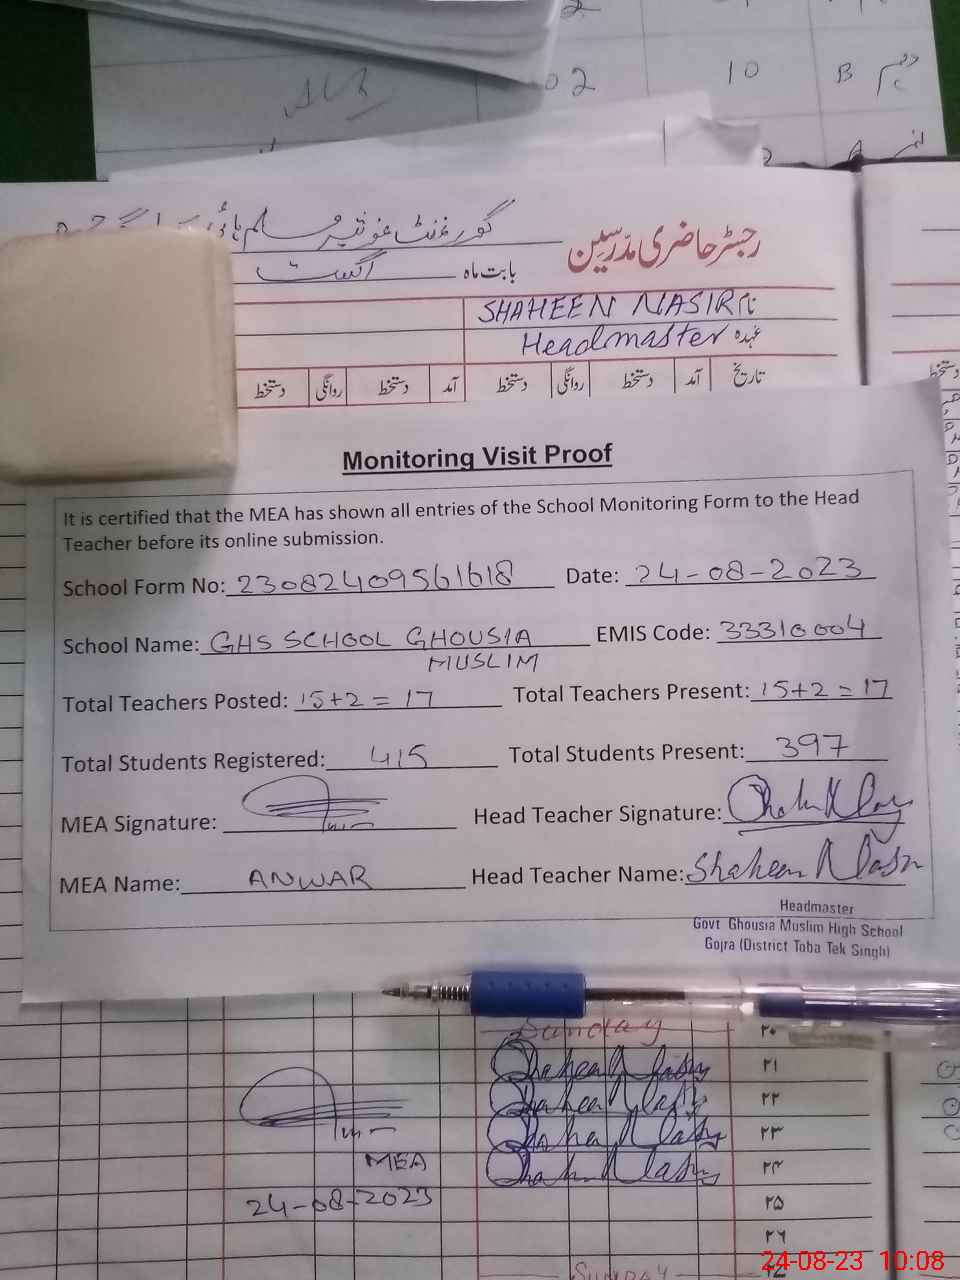 02 10 B
گورنمنٹ غوثیہ مسلم ہائی
رجسٹر حاضری مدرسین
بابت ماہ اگست
نام SHAHEEN NASIR
عہدہ Headmaster
تاریخ آمد دستخط روانگی دستخط آمد دستخط روانگی دستخط
دستخط
Monitoring Visit Proof
It is certified that the MEA has shown all entries of the School Monitoring Form to the Head
Teacher before its online submission.
School Form No: 23082409561618 Date: 24-08-2023
School Name: GHS SCHOOL GHOUSIA EMIS Code: 33310004
MUSLIM
Total Teachers Posted: 15+2=17 Total Teachers Present: 15+2=17
Total Students Registered: 415 Total Students Present: 397
MEA Signature: Head Teacher Signature:
MEA Name: ANWAR Head Teacher Name: Shaheen Nasir
Headmaster
Govt Ghousia Muslim High School
Gojra (District Toba Tek Singh)
Sunday ۲۰
Shaheen Nasir ۲۱
Shaheen Nasir ۲۲
Shaheen Nasir ۲۳
Shaheen Nasir ۲۴
MEA
24-08-2023
۲۵
۲۶
SUNDAY ۲۷
24-08-23 10:08